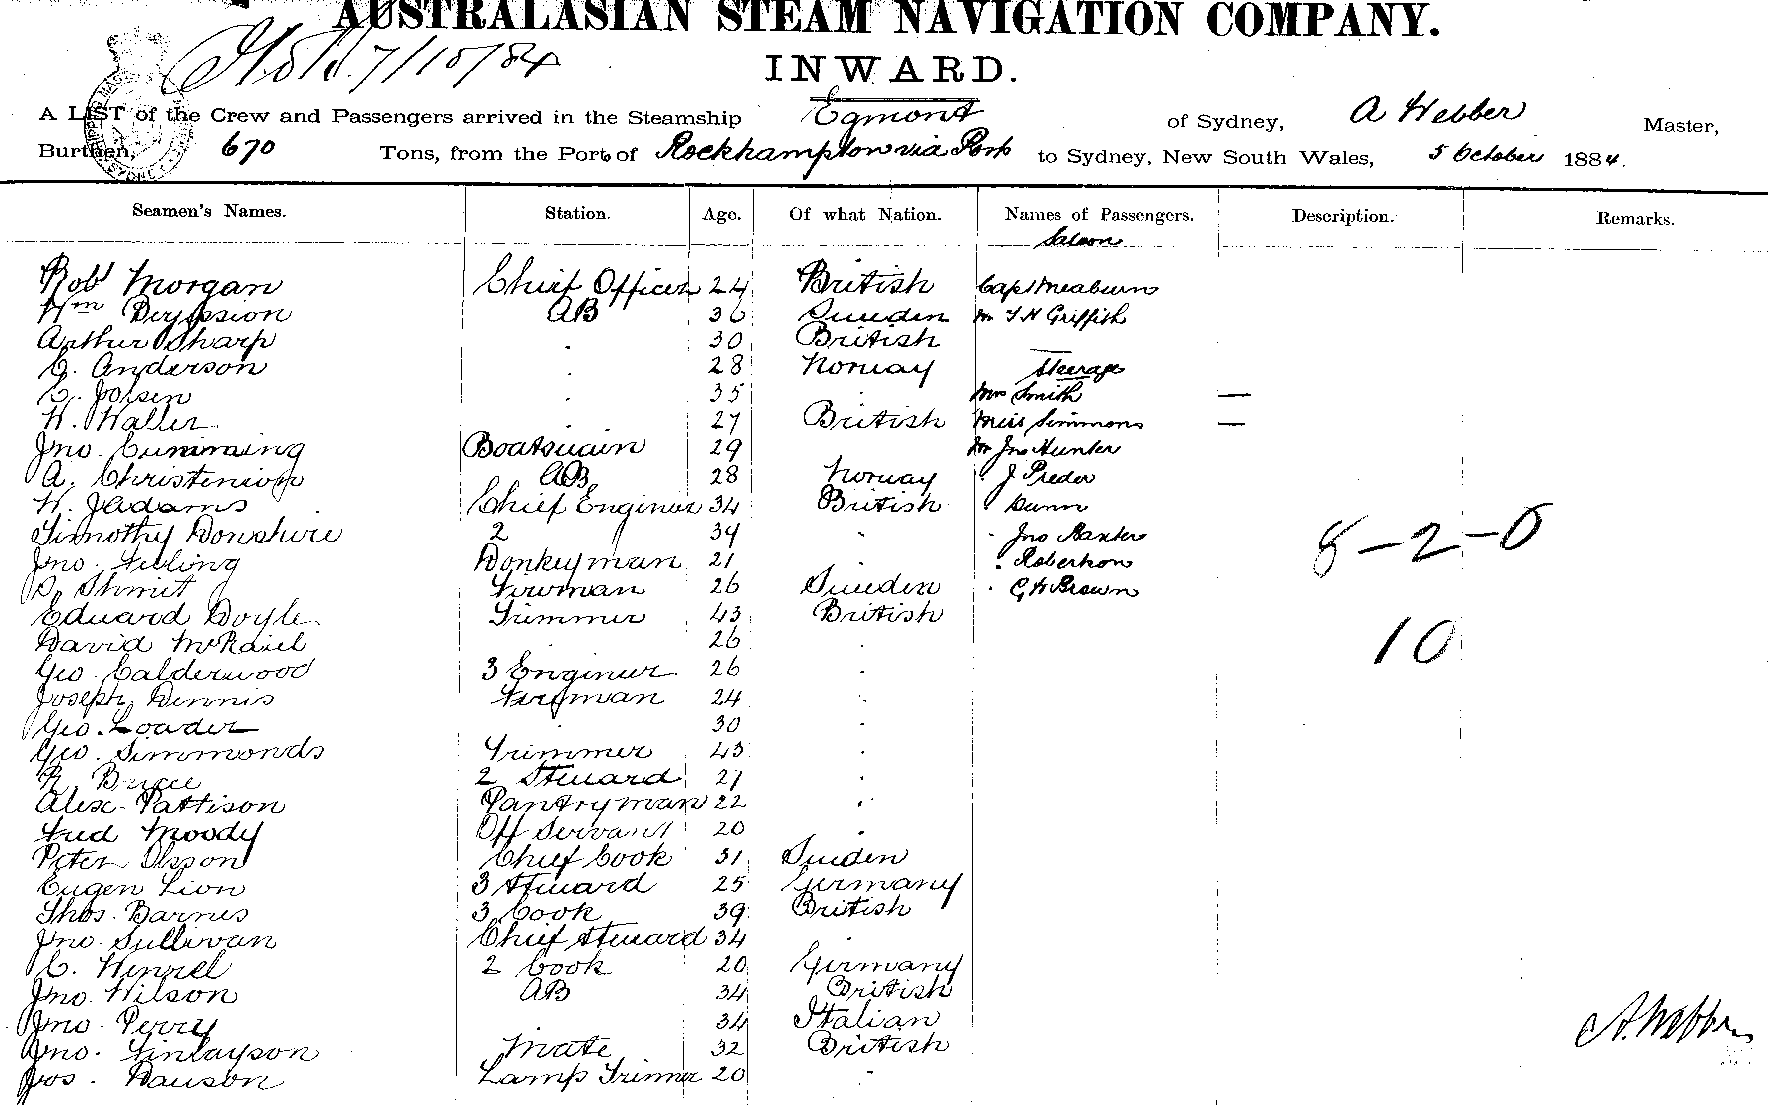 AUSTRALASIAN STEAM NAVIGATION COMPANY.
7/10/84
INWARD.
A LIST of the Crew and Passengers arrived in the Steamship Egmont of Sydney, A Webber Master,
Burthen, 670 Tons, from the Port of Rockhampton via Port to Sydney, New South Wales, 5 October 1884.
Seamen's Names. Station. Age. Of what Nation. Names of Passengers. Description. Remarks.
Saloon
Robt Morgan Chief Officer 24 British Capt Meaburn
Wm AB 36 Sweden Mr T H Griffith
Arthur Sharp . 30 British
C. Anderson . 28 Norway Steerage
C. . 35 . Mrs Smith —
W. Waller 27 British Miss Simmons —
Jno. Cumming Boatswain 29 Mr Jno Hunter
A. Christenson AB 28 Norway " J Preder
W. J Adams Chief Enginer 34 British " Dunn
Timothy Donshure 2 34 . " Jno Baxter
Jno. Donkeyman 21 " Robertson
Shmit Firman 26 Sweden " G H Brown
8-2-0
Edward Doyle Trimmer 43 British
David 26 .
10
Geo. Calderwood 3 Enginer 26 .
Joseph Dennis Firman 24 .
Geo. Loader . 30 .
Geo. Simmonds Trimmer 43 .
R. Bruce 2 Steward 21 .
Alex. Pattison Pantryman 22 .
Fred Moody Off Servant 20 .
Peter Olsson Chief Cook 31 Sweden
Eugen Lion 3 Steward 25 Germany
Thos. Barnes 3 Cook 39 British
Jno. Sullivan Chief Steward 34 .
C. Wenzel 2 Cook 20 Germany
Jno. Wilson AB 34 British
Jno. Perry 34 Italian
A. Webber
Jno. Finlayson Mate 32 British
Jos. Dawson Lamp Trimmer 20 "